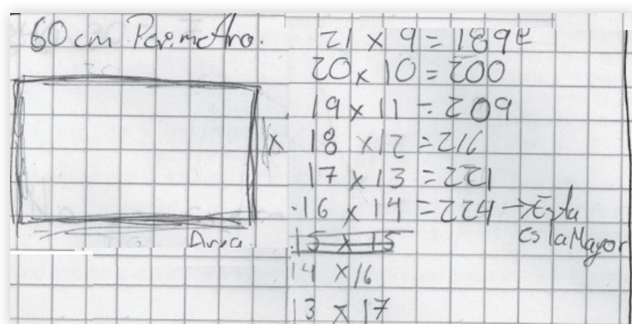 60 cm Perimetro.
21 x 9 = 189
20 x 10 = 200
19 x 11 = 209
x
18 x 12 = 216
17 x 13 = 221
16 x 14 = 224 → Esta
es la Mayor
Area
15 x 15
14 x 16
13 x 17